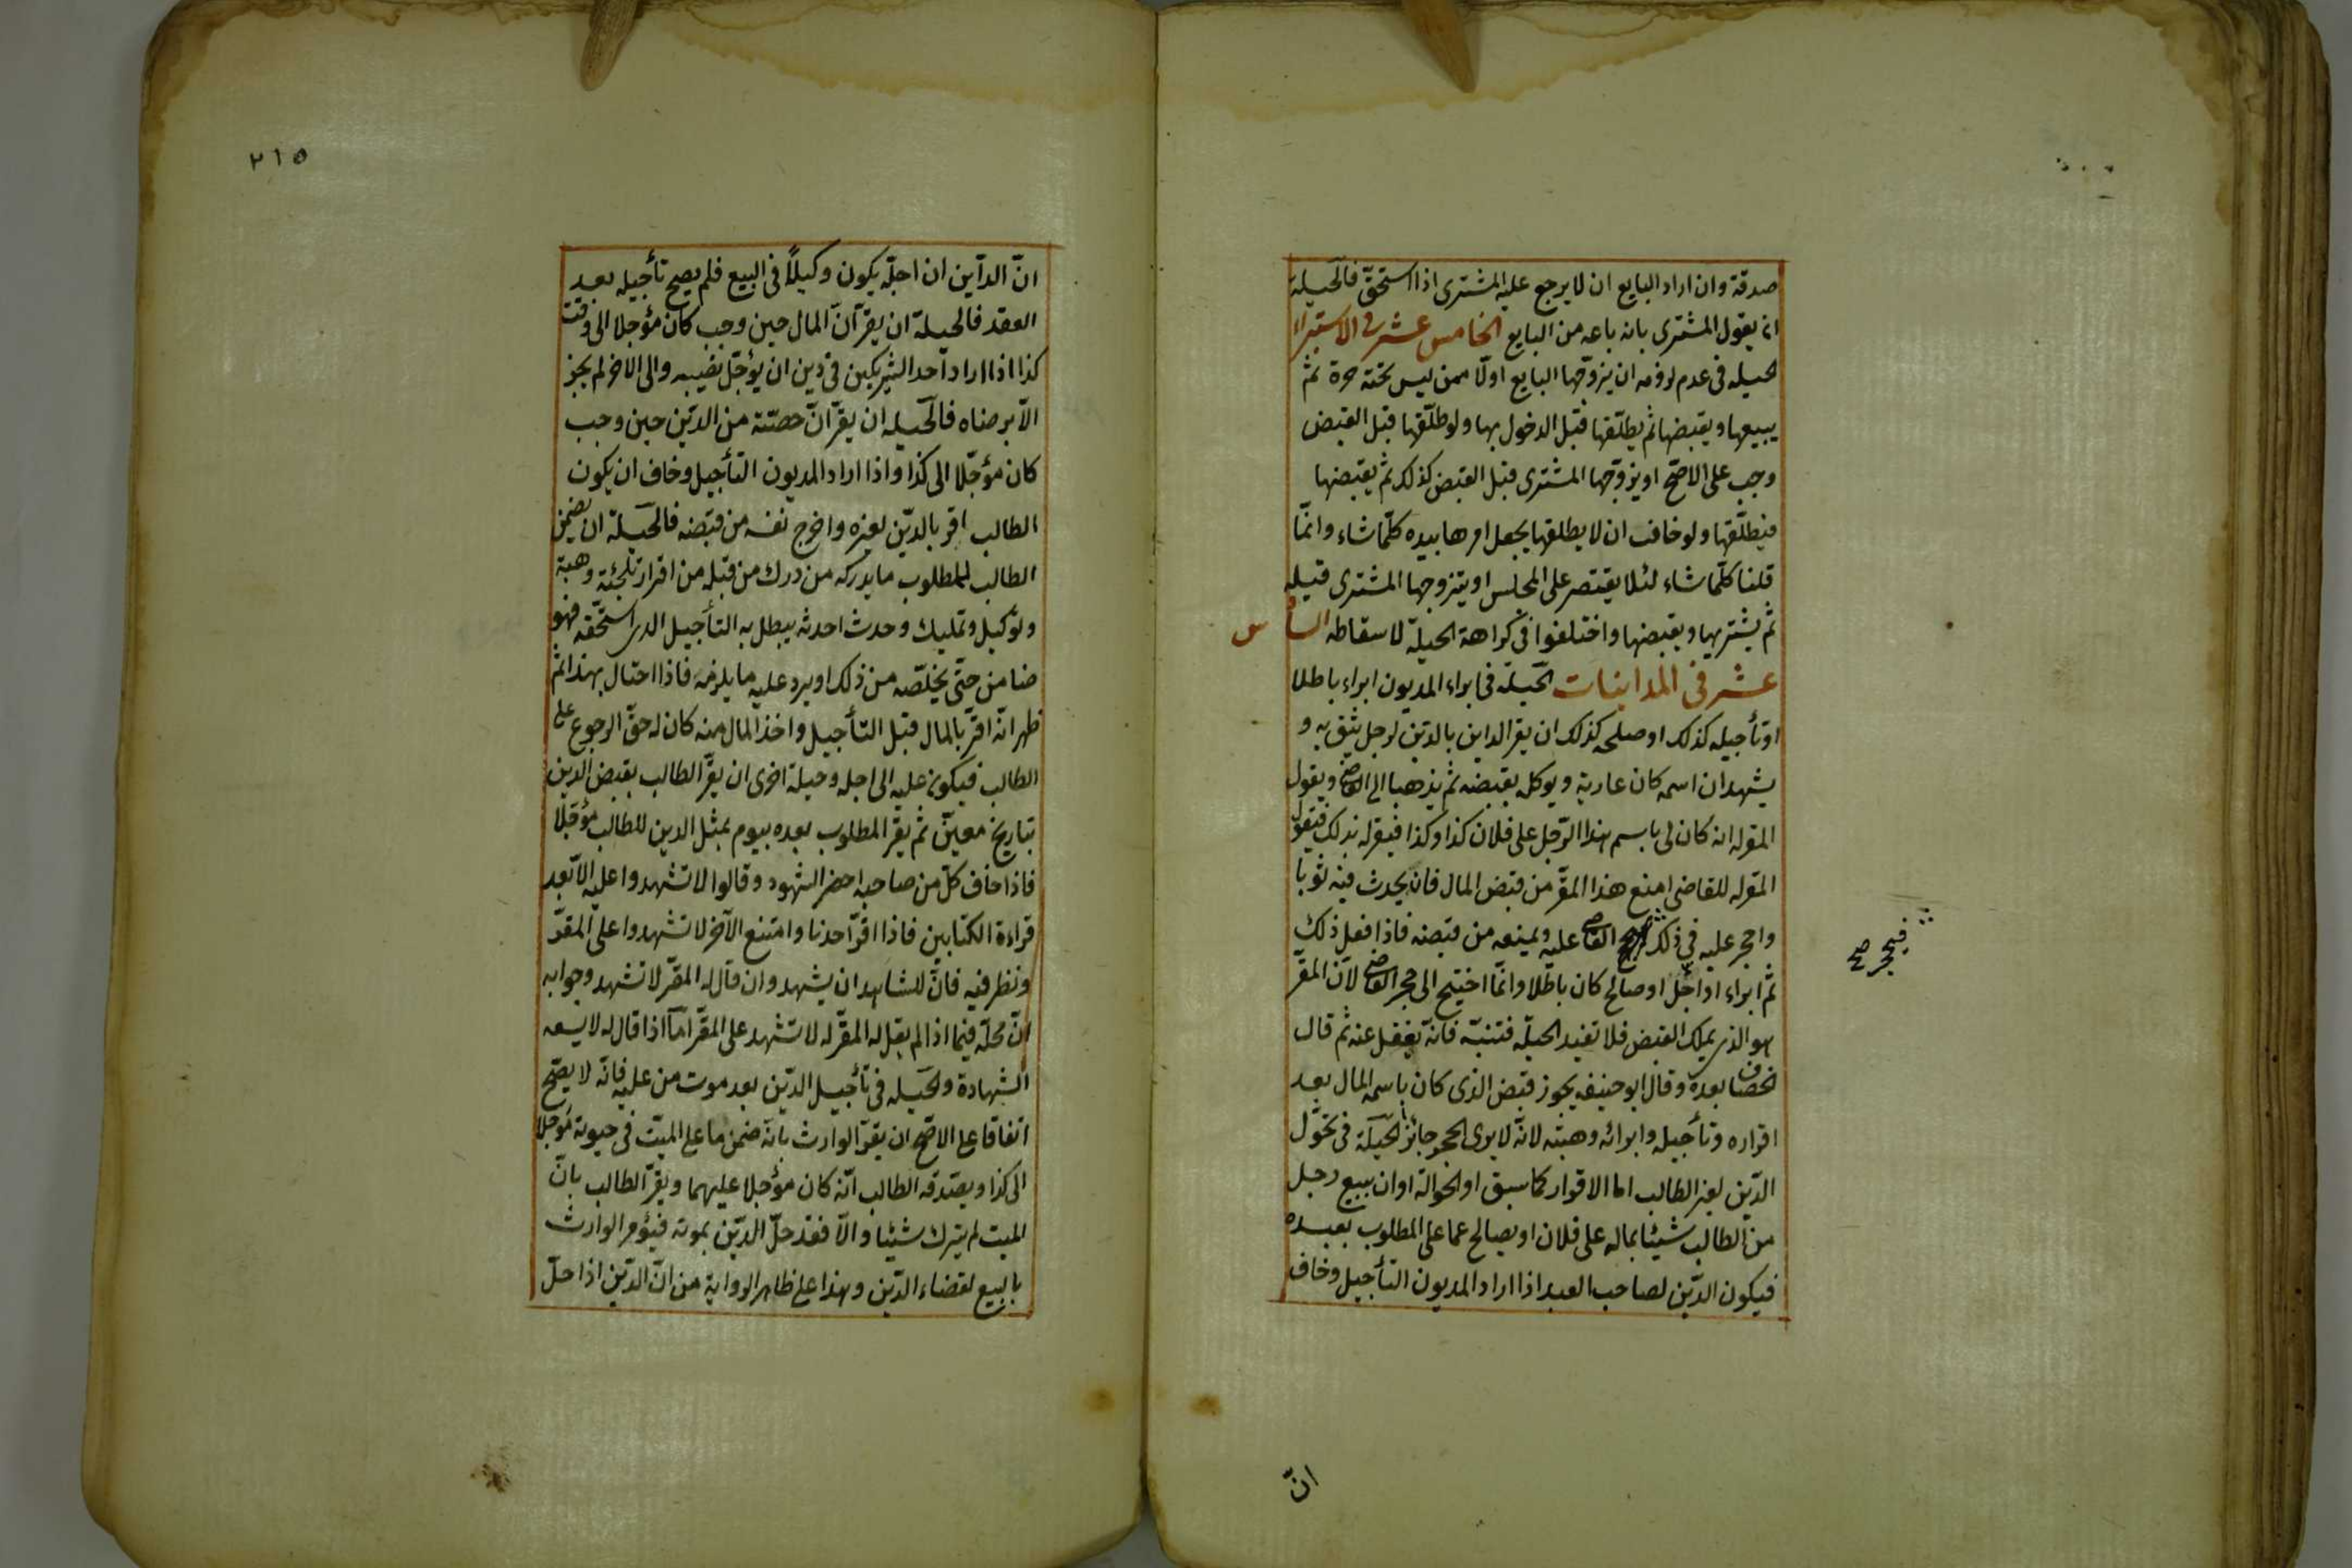 صدقة وان اراد البايع ان لا يرجع عليه المشترى اذا استحقّ فالحيلة
ان يقول المشترى بانه باعه من البايع الخامس عشر فى الاستبراء
الحيله فى عدم لزومه ان يزوّجها البايع اولا ممن ليس تحته حرة ثمّ
يبيعها ويقبضها ثم يطلّقها قبل الدخول بها ولو طلّقها قبل القبض
وجب على الاصحّ او يزوّجها المشترى قبل القبض كذلك ثم يقبضها
فيطلّقها ولو خافت ان لا يطلقها يجعل امرها بيده كلّما شاء وانّما
قلنا كلّما شاء لئلا يقتصر على المجلس او يتزوجها المشترى قبله
ثم يشتريها ويقبضها واختلفوا فى كراهة الحيلة لاسقاطه السادس
عشر فى المداينات الحيلة فى ابراء المديون ابراء باطلا
او تأجيله كذلك او صلحه كذلك ان يقر الداين بالدين لرجل يثق به و
يشهد ان اسمه كان عارية ويوكله بقبضه ثم يذهبا الى القاضى ويقول
المقرله انه كان لى باسم هذا الرّجل على فلان كذا وكذا فيقرله بذلك فيقول
المقرله للقاضى امنع هذا المقرّ من قبض المال فان يحدث فيه ثوبا
واحجر عليه فى ذلك القاضى عليه ويمنعه من قبضه فاذا فعل ذلك
فيحجر صح
ثم ابراء او اجّل او صالح كان باطلا وانّما احتيج الى حجر القاضى لانّ المقرّ
هو الذى يملك القبض فلا تفيد الحيلة فتنبّه فانّه يغفل عنه ثم قال
الخصاف بعده وقال ابو حنيفه يجوز قبض الذى كان باسمه المال بعد
اقراره وتأجيله وابرائه وهبته لانّه لا يرى الحجر جائزا الحيلة فى تحوّل
الدّين لغير الطالب اما الاقرار كما سبق او الحوالة او ان يبيع رجل
من الطالب شيئا بماله على فلان او يصالح عما على المطلوب بعبده
فيكون الدّين لصاحب العبد اذا اراد المديون التأجيل وخاف
انّ
٢١٥
انّ الدآين ان اجلّه يكون وكيلاً فى البيع فلم يصح تأجيله بعد
العقد فالحيلة ان يقرّ انّ المال حين وجب كان مؤجلا الى وقت
كذا اذا اراد احد الشريكين فى دين ان يؤجّل نصيبه والى الاخر لم يجز
الاّ برضاه فالحيله ان يقرّ انّ حصّته من الدّين حين وجب
كان مؤجّلا الى كذا واذا اراد المديون التأجيل وخاف ان يكون
الطالب اقر بالدّين لغيره واخرج نفسه من قبضه فالحيلة ان يضمن
الطالب للمطلوب ما يدركه من درك من قبله من اقرار تلجئة وهبة
وتوكيل وتمليك وحدث احدثه يبطل به التأجيل الذى استحّقه فهو
ضامن حتّى يخلّصه من ذلك او يرد عليه ما يلزمه فاذا احتال بهذا ثم
ظهر انّه اقرّ بالمال قبل التأجيل واخذ المال منه كان له حقّ الرجوع على
الطالب فيكون عليه الى اجله وحيلة اخرى ان يقرّ الطالب بقبض الدين
بتاريخ معيّن ثم يقرّ المطلوب بعده بيوم بمثل الدين للطالب مؤجّلا
فاذا خاف كلّ من صاحبه احضر الشهود وقالوا لا تشهدوا علينا الاّ بعد
قراءة الكتابين فاذا اقرّ احدنا وامتنع الآخر لا تشهدوا على المقرّ
ونظر فيه فانّ للشاهد ان يشهد وان قال له المقرّ لا تشهد وجوابه
انّ محلّه فيما اذا لم يقل له المقرّ له لا تشهد على المقرّ امّا اذا قال له لا يسعه
الشهادة والحيله فى تأجيل الدّين بعد موت من عليه فانّه لا يصحّ
اتفاقا على الاصحّ ان يقرّ الوارث بانّه ضمن ما على الميّت فى حيوته مؤجلا
الى كذا ويصّدقه الطالب انّه كان مؤجلا عليهما ويقرّ الطالب بانّ
الميت لم يترك شيئا والاّ فقد حلّ الدّين بموته فيؤمر الوارث
بالبيع لقضاء الدّين وهذا على ظاهر الرواية من انّ الدّين اذا حلّ